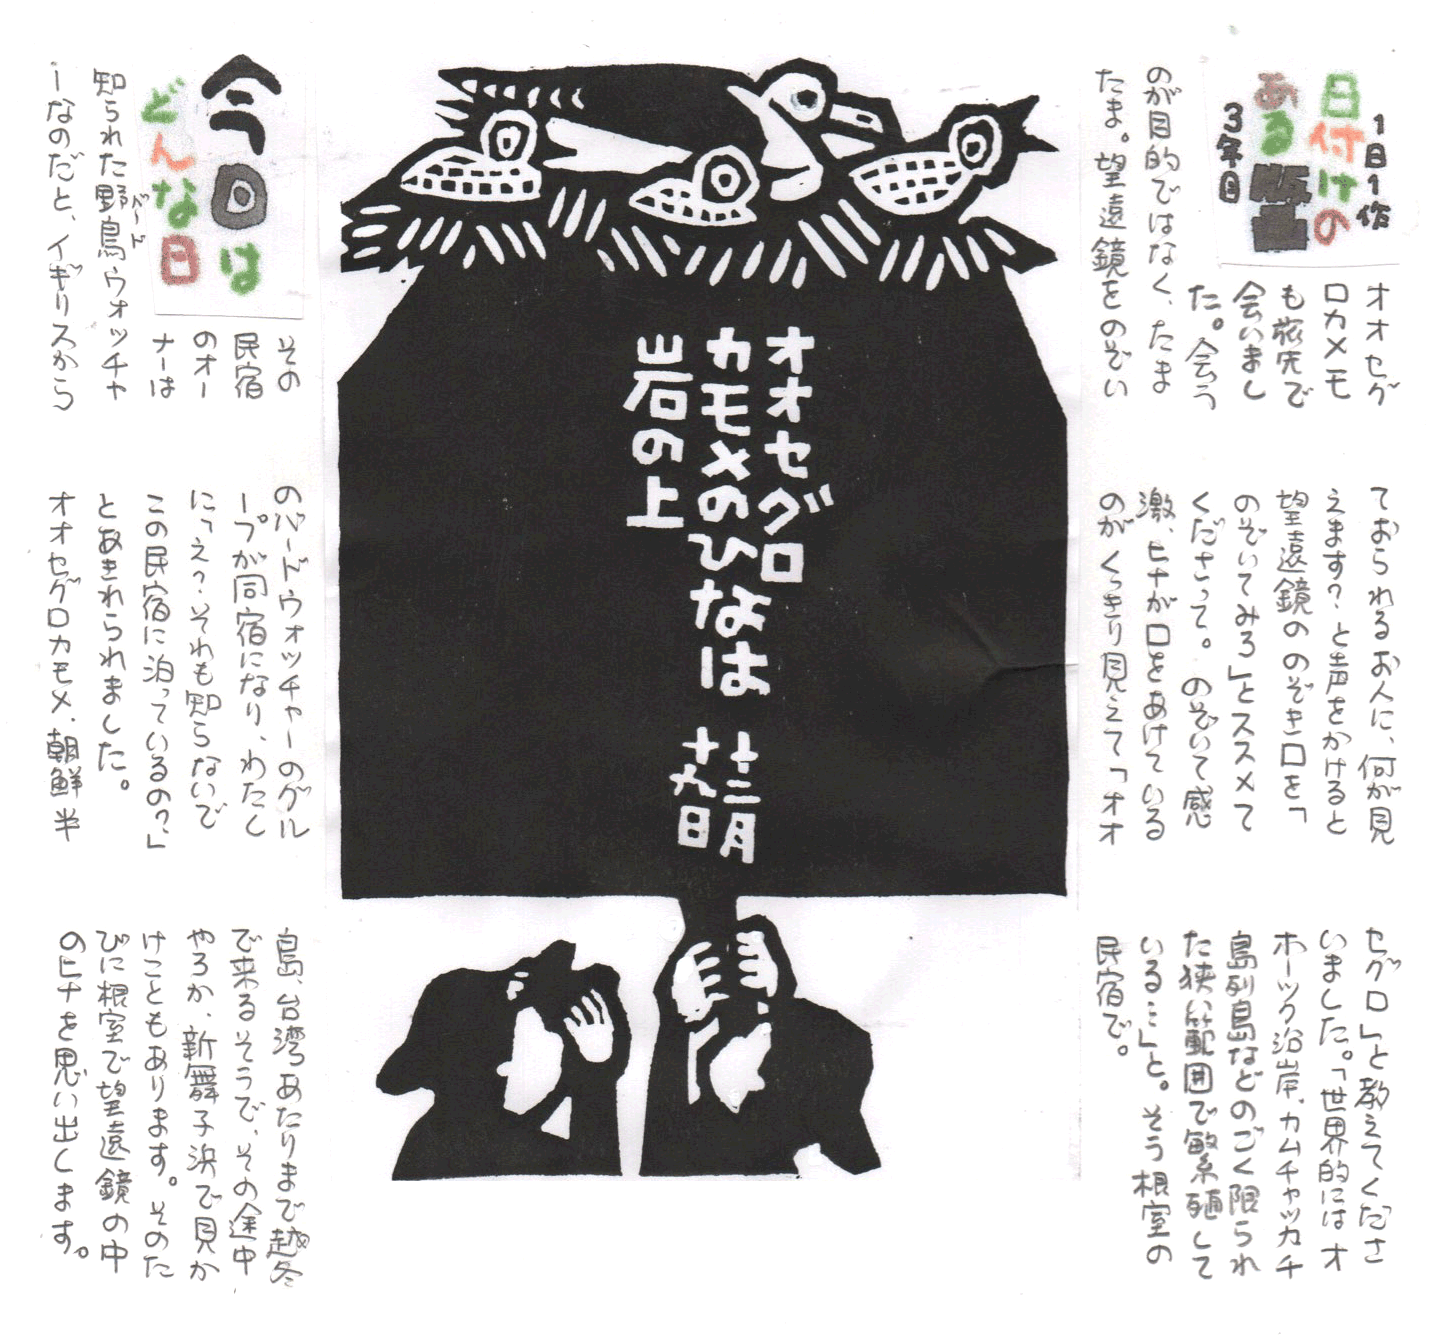 1日1作
日付けの
ある版画
3年目
オオセグ
ロカメモ
も旅先で
会いまし
た。会う
のが目的ではなく、たま
たま。望遠鏡をのぞい
ておられるお人に、何が見
えます?と声をかけると
望遠鏡ののぞき口を「
のぞいてみろ」とススメて
くださって。のぞいて感
激、ヒナが口をあけている
のがくっきり見えて「オオ
セグロ」と教えてくださ
いました。「世界的にはオ
ホーツク沿岸、カムチャッカチ
島列島などのごく限られ
た狭い範囲で繁殖して
いる…」と。そう根室の
民宿で。
オオセグロ
カモメのひなは
岩の上
十二月
十九日
今日は
どんな日
その
民宿
のオー
ナーは
知られた野鳥ウォッチャ
バード
ーなのだと、イギリスから
のバードウォッチャーのグル
ープが同宿になり、わたし
に「え?それも知らないで
この民宿に泊っているの?」
とあきれられました。
オオセグロカモメ、朝鮮半
島、台湾あたりまで越冬
で来るそうで、その途中
やろか、新舞子浜で見か
けこともあります。そのた
びに根室で望遠鏡の中
のヒナを思い出します。